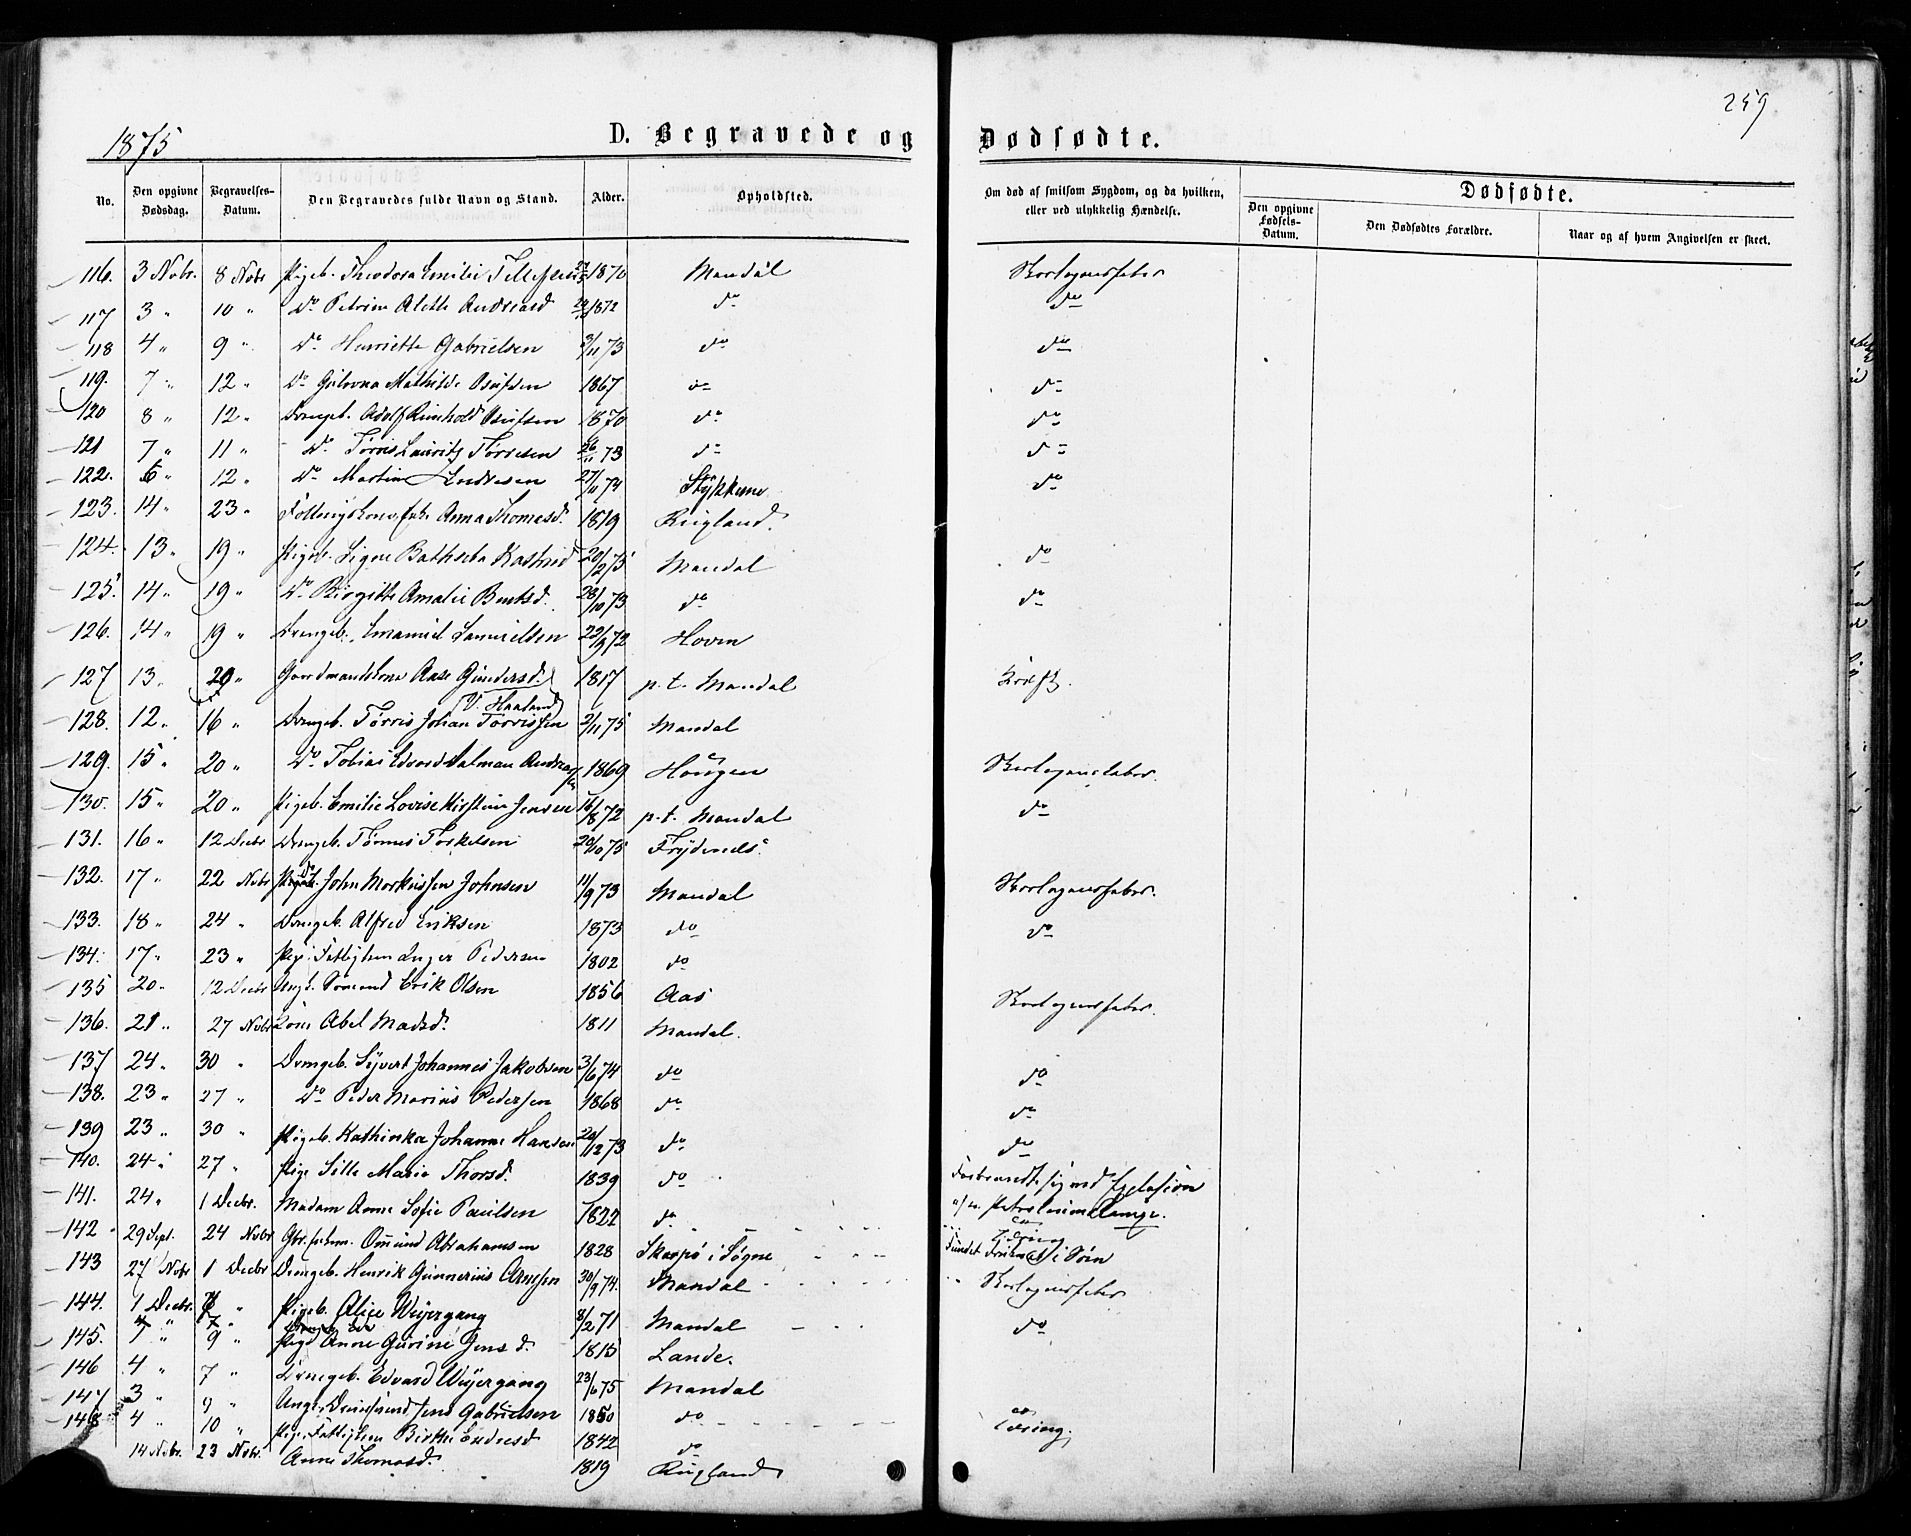 259
1875
D. Begravede og Dødfødte.
No. Den opgivne Dødsdag. Begravelses-Datum. Den Begravedes fulde Navn og Stand. Alder. Opholdsted. Om død af smitsom Sygdom, og da hvilken, eller ved ulykkelig Hændelse. Dødfødte.
Den opgivne Fødsels-Datum. Den Dødfødtes Forældre. Naar og af hvem Angivelsen er skeet.
116. 3 Novbr. 8 Novbr Pigeb. Theodora Emilie Tellefsen 1870 Mandal Skarlagensfeber
117 3 " 10 " Do Petrine Alette Andreasd 1872 do do
118 4 " 9 " Do Henriette Gabrielsen 3/11 73 do do
119. 7 " 12 " Do Mathilde Osufsen 1867 do do
120 8 " 12 " Drengeb. Adolf Reinhold Osufsen 1870 do do
121 7 " 11 " Do Tørris Lauritz Tørresen 73 do do
122. 6 " 12 " Do Martin Andresen 27/11 74 Stykkerne do
123. 14 " 23 " Anna Thomasd. 1819 Rugland.
124. 13 " 19 " Pigeb. Signe Bathseba 20/2 75 Mandal do
125. 14 " 19 " Do Birgitte Amalie Berntsd. 28/10 73 do do
126. 14 " 19 " Drengeb. Emanuel Samuelsen 22/9 72 Hoven
127 13 " 20 " Gaardmandskone Aase Gundersd. 1817 p. t. Mandal Kræft.
(V. Haaland)
128. 12 " 16 " Drengeb. Tørris Johan Tørrissen 2/11 75 Mandal
129. 15 " 20 " Do Tobias Edvard Salman Andreassen 1869 Hougen Skarlagensfeber.
130. 15 " 20 " Pigeb. Emilie Lovise Kirstine Jensen 14/8 72 p. t. Mandal do
131. 16 " 12 Decbr Drengeb. Tønnes Torkelsen 20/10 75 Frydends.
132. 17 " 22 Novbr do John Markussen Johnsen 11/9 73 Mandal Skarlagensfeber.
133. 18 " 24 " Drengeb. Alfred Eriksen 1873 do do
134. 17 " 23 " Pige. Fattiglem Inger Pedersen 1802 do
135 20 " 12 Decbr Ungk. Sømand Erik Olsen 1856 Aas Skarlagensfeber.
136. 21 " 27 Novbr Kone Abel Madsd. 1811 Mandal.
137 24 " 30 " Drengeb. Syvert Johannes Jakobsen 3/6 74 do do
138. 23 " 27 " Do Peder Marius Pedersen 1868 do do
139 23 " 30 " Pigeb. Kathinka Johanne Hansen 20/12 73 do do
140. 24 " 27 " Pige Sille Marie Thorsd. 1839 do Forbrændte sig ved Explosion
141. 24 " 1 Decbr. Madam Anne Sofie Paulsen 1822 do. af en Petroleumslampe.
142 29 Sept. 24 Novbr Omund Abrahamsen 1828 Skarpø i Søgne Fundet i Søen
143 27 Novbr 1 Decbr Drengeb. Henrik Gunnerius Arnesen 30/9 74. Mandal Skarlagensfeber
144. 1 Decbr. 7 " Pigeb. Alice Weyergang 8/2 71 Mandal do
145. 1 " 9 " Pige Anne Gurine Jensd. 1815 Lande.
146 4 " 7 " Drengeb. Edvard Weyergang 23/6 75 Mandal
147 3 " 9 " Jens Gabrielsen 1850 do Tæring.
148 4 " 10 " Pige Fattiglem Birthe Endresd 1842 do
14 Novbr. 23 Novbr. Anne Thomasd. 1819 Rugland